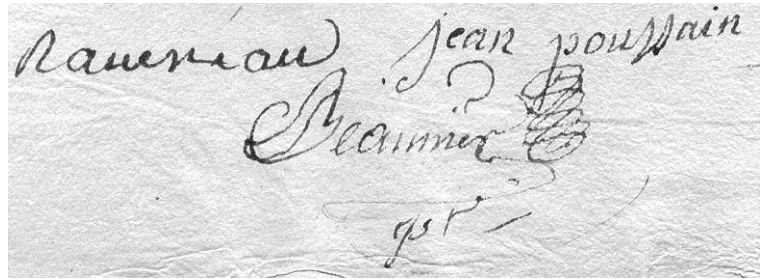 raveneau jean poussain
Beaumier